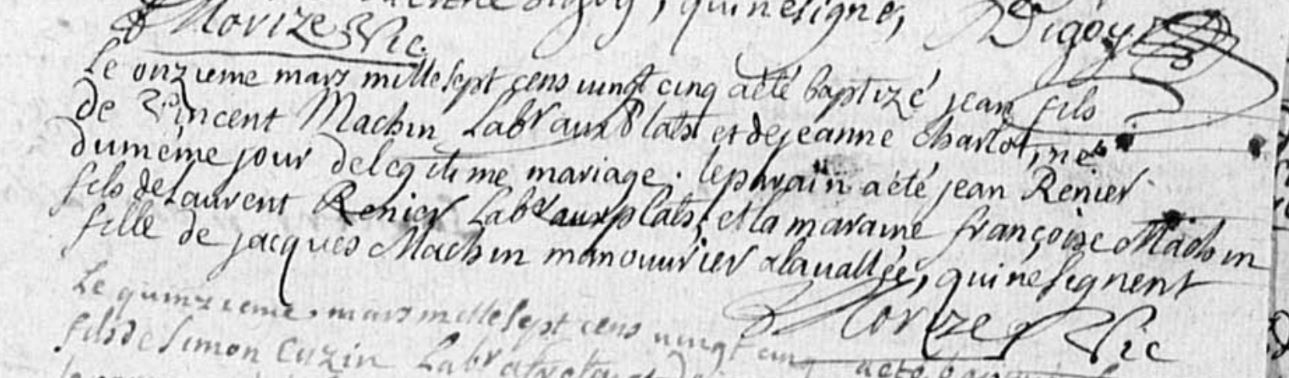 qui ne signe, Digoy
Morize Vic.
Le onzieme mars mille sept cens vingt cinq a été baptizé jean fils
de Vincent Machin Lab^r aux Plats et de jeanne Charlot, né
du même jour de legitime mariage. le parain a été jean Renier
fils de Laurent Renier Lab^r aux plats, et la maraine françoise Machin
fille de jacques Machin manouvrier a lavallée, qui ne signent
Morize Vic
Le quinzieme mars mille sept cens vingt cinq a été
fils de Simon Cuzin Lab^r